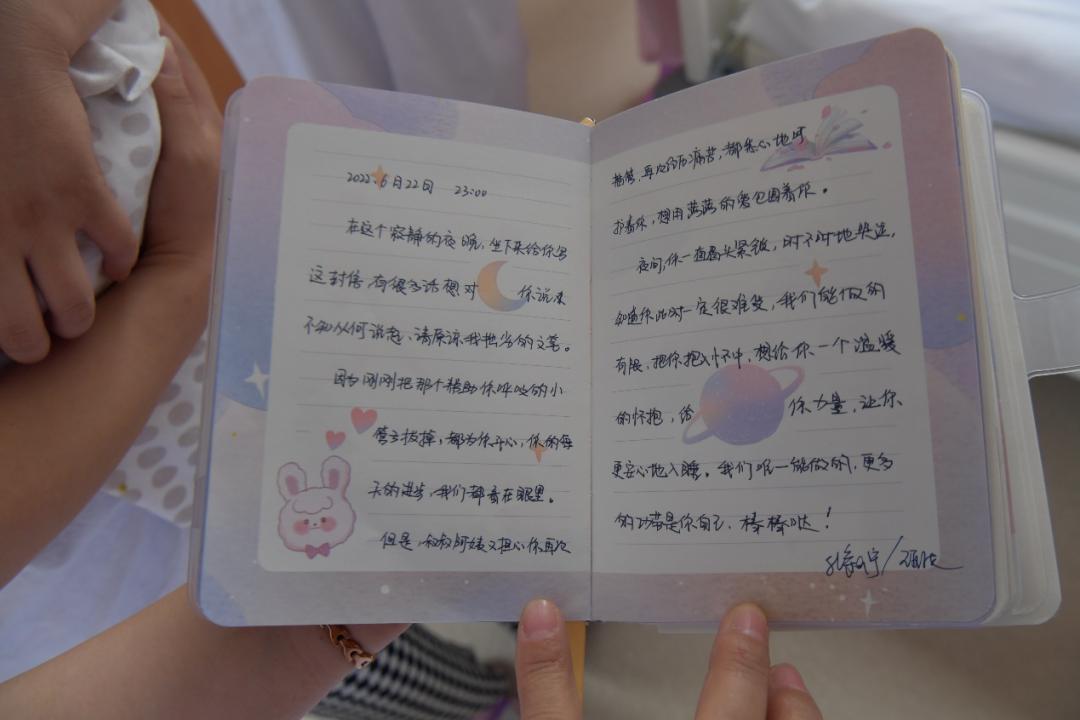 2022.6月22日 23:00
在这个寂静的夜晚,坐下来给你写
这封信,有很多话想对你说来
不知从何说起、请原谅我拙劣的文笔。
因为刚刚把那个辅助你呼吸的小
管子拔掉,都为你开心,你的每
天的进步,我们都看在眼里。
但是,叔叔阿姨又担心你再次
插管、再次经历痛苦,都悉心地呵
护着你,想用满满的爱包围着你。
夜间,你一直眉头紧皱,时不时地哭泣,
知道你此时一定很难受,我们能做的
有限,把你抱入怀中,想给你一个温暖
的怀抱,给你力量,让你
更安心地入睡。我们唯一能做的,更多
的功劳是你自己,棒棒哒!